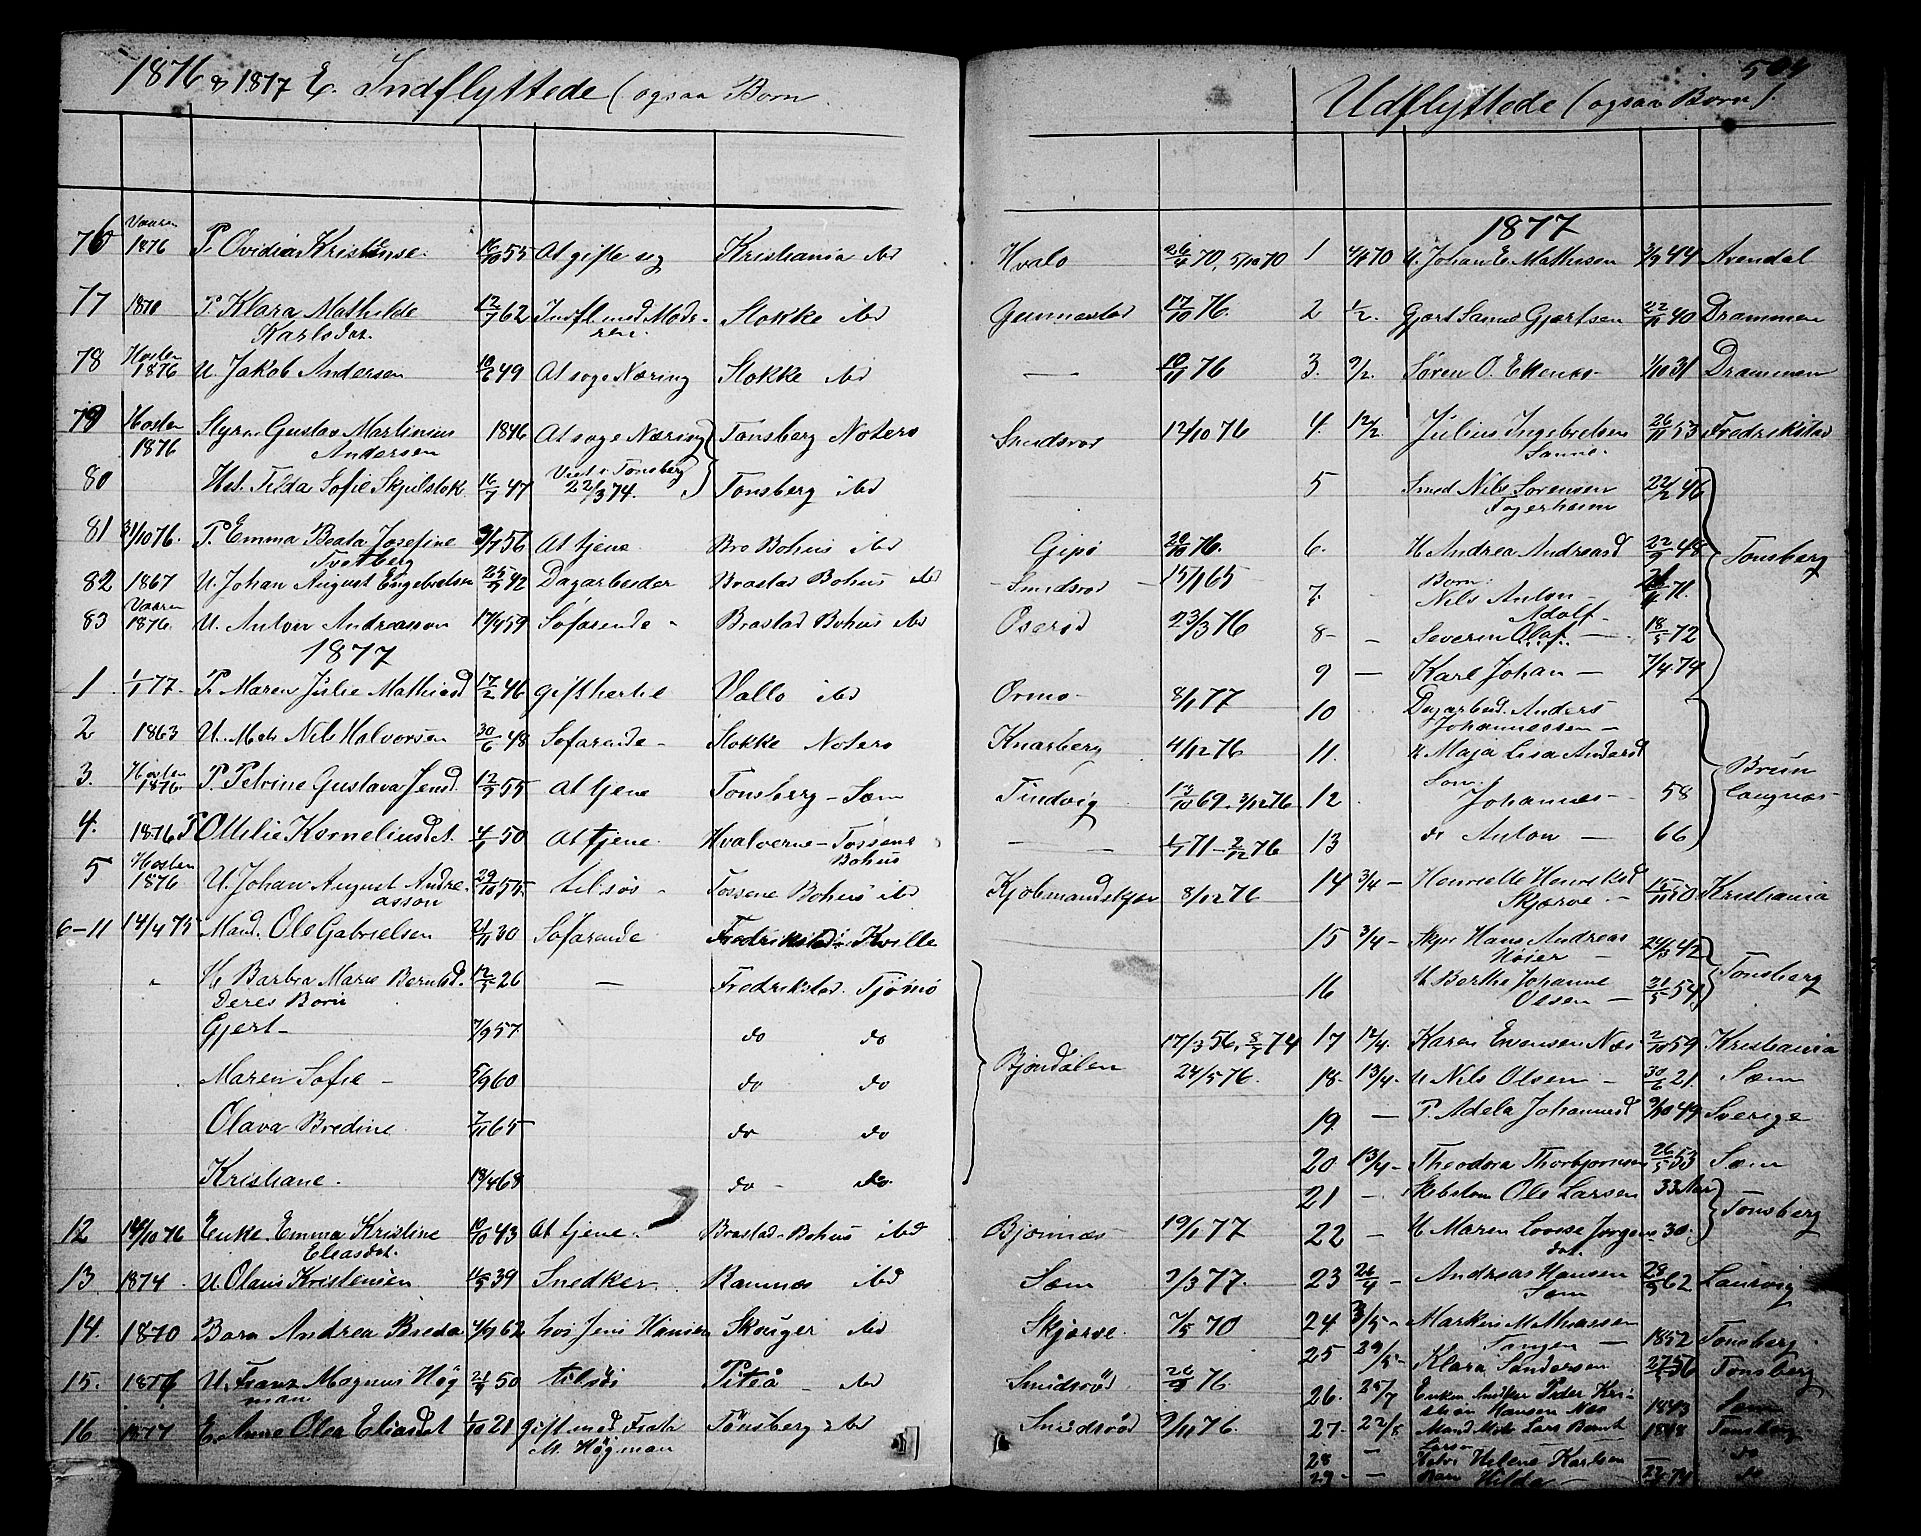 1876 & 1877 E. Indflyttede (ogsaa Børn
76 Vaaren 1876 P. Ovidia Kristense. 16/10 55 At gifte sig Kristiania ibd Hvalø 26/4 70, 5/10 70
77 1870 P. Klara Mathilde Karlsdat. 12/7 62 Indfl. med Modren: Stokke ibd Gunnestad 17/10 76
78 Høsten 1876 U. Jakob Andersen 10/6 49 At søge Næring Stokke ibd — 10/11 76
79 Høsten 1876 Styrm Gustav Martinius Andersen 1846 At søge Næring Tønsberg Noterø Smidsrød 12/10 76
80 Hst. Tilda Sofie Skjelstok 16/7 47 Viet i Tønsberg 22/3 74. Tønsberg ibd
81 31/10 76. P. Emma Beata Josefine Tvetberg 3/7 56 At tjene Bro Bohus ibd Gipø 20/10 76.
82 1867 U. Johan August Engebretsen 25/9 42 Dagarbeider Brastad Bohus ibd Smidsrød 15/1 65
83 Vaaren 1876. U. Anton Andreasson 17/4 59 Søfarende Brastad Bohus ibd Oserød 23/3 76
1877
1 1/1 77. P. Maren Julie Mathisd 17/2 46 gift hertil Vallø ibd Ormø 8/1 77
2 1863 U. Mats Nils Halvorsen 30/6 48 Søfarende Stokke Noterø Knarberg 4/12 76
3. Høsten 1876. P. Petrine Gustava Jensd 12/7 55 At tjene Tønsberg – Sem Tindvig 13/10 69. 3/12 76
4. 1876 P Ottilie Korneliusdat. 4/1 50 At tjene Hvaløerne – Tossene Bohus — — 1/7 71 – 2/12 76
5 Høsten 1876 U. Johan August Andreasson 29/10 55. tilsøs Tossene Bohus ibd Kjøbmandskjær 8/12 76
6–11 14/4 75 Mand. Ole Gabrielsen 21/11 30 Søfarende Fredrikstad Kville
" H Barbra Marie Berntsd. 12/1 26 — Fredrikstad. Tjømø
Deres Børn
Gjert 7/9 57 do do Bjøndalen 17/3 56, 8/7 74
Maren Sofie 5/9 60 do do 24/5 76.
Olava Bredine 7/11 65 do do
Kristiane. 19/4 68 do do
12 14/10 76 Enke. Emma Kristine Eliasdat. 10/10 43 At tjene. Brastad Bohus ibd Bjørnæs 19/1 77
13. 1874. U. Olaus Kristensen 16/3 39 Snedker Ramnæs ibd Sem 2/3 77.
14. 1870 Barn Andrea Breda 4/9 62 hos Jens Hansen Skouger ibd Skjærve. 7/5 70
15. 1876 U. Franz Magnus Högman 21/9 50 tilsøs Piteå ibd Smidsrød. 26/9 76
16 1877 E. Anne Olea Eliasdat 1/10 21 Gift med Frantz M. Högman Tönsberg ibd Smidsrød 9/11 76.
504
Udflyttede (ogsaa Børn).
1877
1 4/1 70 U. Johan E. Mathisen 3/9 44 Arendal
2 1/2. Gjert Samuel Gjertsen 22/11 40 Drammen
3. 9/2. Søren O. Ekenæs 1/10 31 Drammen
4. 12/2 Julius Ingebretsen Sanne. 26/11 53 Fredrikstad
5 Smed Nils Sørensen Fagerheim 22/2 46
6. H Andrea Andreasd 22/9 48 Tønsberg
7. Børn: Nils Anton Adolf 71.
8 — Severin Olaf 18/5 72
9 — Karl Johan — 7/4 74
10 Dagarbeid. Anders Johannessen
11. H. Maja Lisa Andersd
12 Søn Johannes 58 Brunlaugnæs
13 do Anton — 66
14 3/4 – Henriette Henriksd Skjærve. 15/11 50 Kristiania
15 3/4 – Skpr Hans Andreas Høier 24/3 42
16 H Berthe Johanne Olsen 21/5 54 Tønsberg
17 12/4. Karen Evensen Næs 2/10 59 Kristiania
18 13/4 U Nils Olsen 30/6 21 Sem
19. — P. Adela Johannesd 9/10 49 Sverige
20 13/4 – Theodora Thorbjørnsen 26/5 53 Sem
21 — Skibstøm Ole Larsen 33 Aar
22 — H Maren Lovise Jørgensdat. 30. Tønsberg
23 26/4 – Andreas Hansen Sem 28/9 62 Laurvig
24 3/5 Markus Mathiassen Tangen 1852 Tønsberg.
25 29/5 Klara Sandersen 27 56 Tønsberg
26. 25/7 Enkem Snedker Peder Kristian Hansen Næs 1843 Sem
27. 22/8 Mand Mats Lars Bernt Larsen 1848 Tønsberg
28 — Kone Helene Karlsen — do
29 — Barn Hilda — 22 74 do